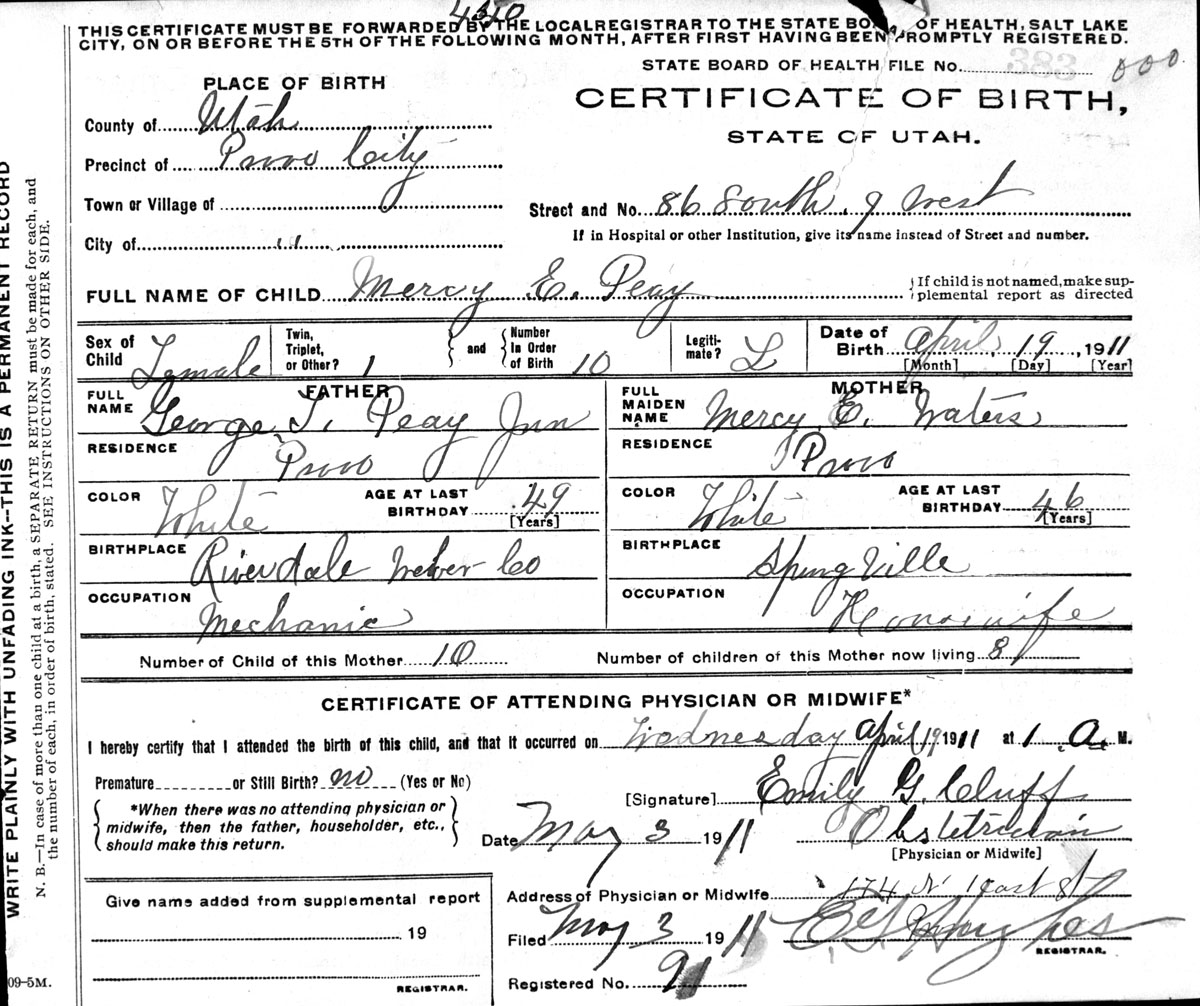 4340
THIS CERTIFICATE MUST BE FORWARDED BY THE LOCAL REGISTRAR TO THE STATE BOARD OF HEALTH, SALT LAKE
CITY, ON OR BEFORE THE 5TH OF THE FOLLOWING MONTH, AFTER FIRST HAVING BEEN PROMPTLY REGISTERED.
STATE BOARD OF HEALTH FILE NO. 383 000
PLACE OF BIRTH
CERTIFICATE OF BIRTH,
STATE OF UTAH.
County of Utah
Precinct of Provo City
Town or Village of
Street and No. 86 South 9 West
City of " "
If in Hospital or other Institution, give its name instead of Street and number.
FULL NAME OF CHILD Mercy E. Peay
{If child is not named, make sup-
plemental report as directed
Sex of Child Female
Twin, Triplet, or Other? 1
and
Number In Order of Birth 10
Legiti-mate? L
Date of Birth April 19, 1911
[Month] [Day] [Year]
FATHER
FULL NAME George T. Peay Jun
MOTHER
FULL MAIDEN NAME Mercy E. Waters
RESIDENCE Provo
RESIDENCE Provo
COLOR White
AGE AT LAST BIRTHDAY 49 [Years]
COLOR White
AGE AT LAST BIRTHDAY 46 [Years]
BIRTHPLACE Riverdale Weber Co
BIRTHPLACE Spring Ville
OCCUPATION Mechanic
OCCUPATION Housewife
Number of Child of this Mother 10
Number of children of this Mother now living 8
CERTIFICATE OF ATTENDING PHYSICIAN OR MIDWIFE*
I hereby certify that I attended the birth of this child, and that it occurred on Wednesday April 19 1911 at 1 A. M.
Premature or Still Birth? no (Yes or No)
[Signature] Emily G. Cluff
*When there was no attending physician or
midwife, then the father, householder, etc.,
should make this return.
Date May 3 1911
Obstetrician
[Physician or Midwife]
Address of Physician or Midwife 174 N 1 East St
Give name added from supplemental report
19
REGISTRAR.
Filed May 3 1911
E G Hughes
REGISTRAR.
Registered No. 91
WRITE PLAINLY WITH UNFADING INK—THIS IS A PERMANENT RECORD
N. B.—In case of more than one child at a birth, a SEPARATE RETURN must be made for each, and
the number of each, in order of birth, stated. SEE INSTRUCTIONS ON OTHER SIDE.
09-5M.